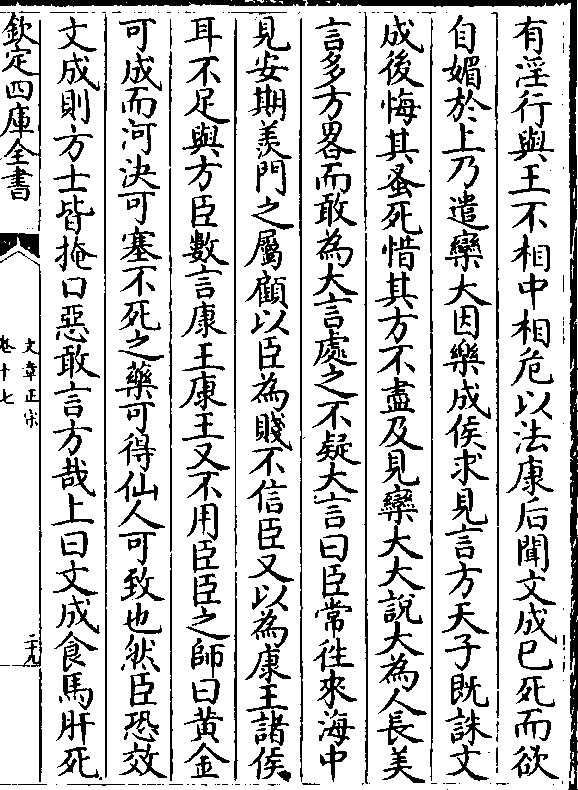 有淫行與王不相中相危以法康后聞文成已死而欲
自媚於上乃遣欒大因樂成侯求見言方天子既誅文
成後悔其蚤死惜其方不盡及見欒大大說大為人長美
言多方畧而敢為大言處之不疑大言曰臣常往來海中
見安期羡門之屬顧以臣為賤不信臣又以為康王諸侯
耳不足與方臣數言康王康王又不用臣臣之師曰黄金
可成而河決可塞不死之藥可得仙人可致也然臣恐效
文成則方士皆掩口惡敢言方哉上曰文成食馬肝死
欽定四庫全書
文章正宗
卷十七
二十九